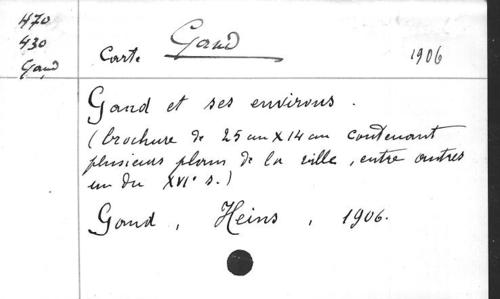 470
430
Gand
Carte Gand 1906
Gand et ses environs.
(brochure de 25 cm X 14 cm contenant
plusieurs plans de la ville, entre autres
un du XVIe s.)
Gand, Heins, 1906.